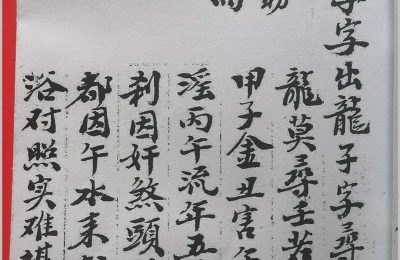 字字出龍子字尋
龍莫尋壬若
甲子金丑害午
淫丙午流年五
刹因奸煞頭
都因午水来
浴对照实难堪